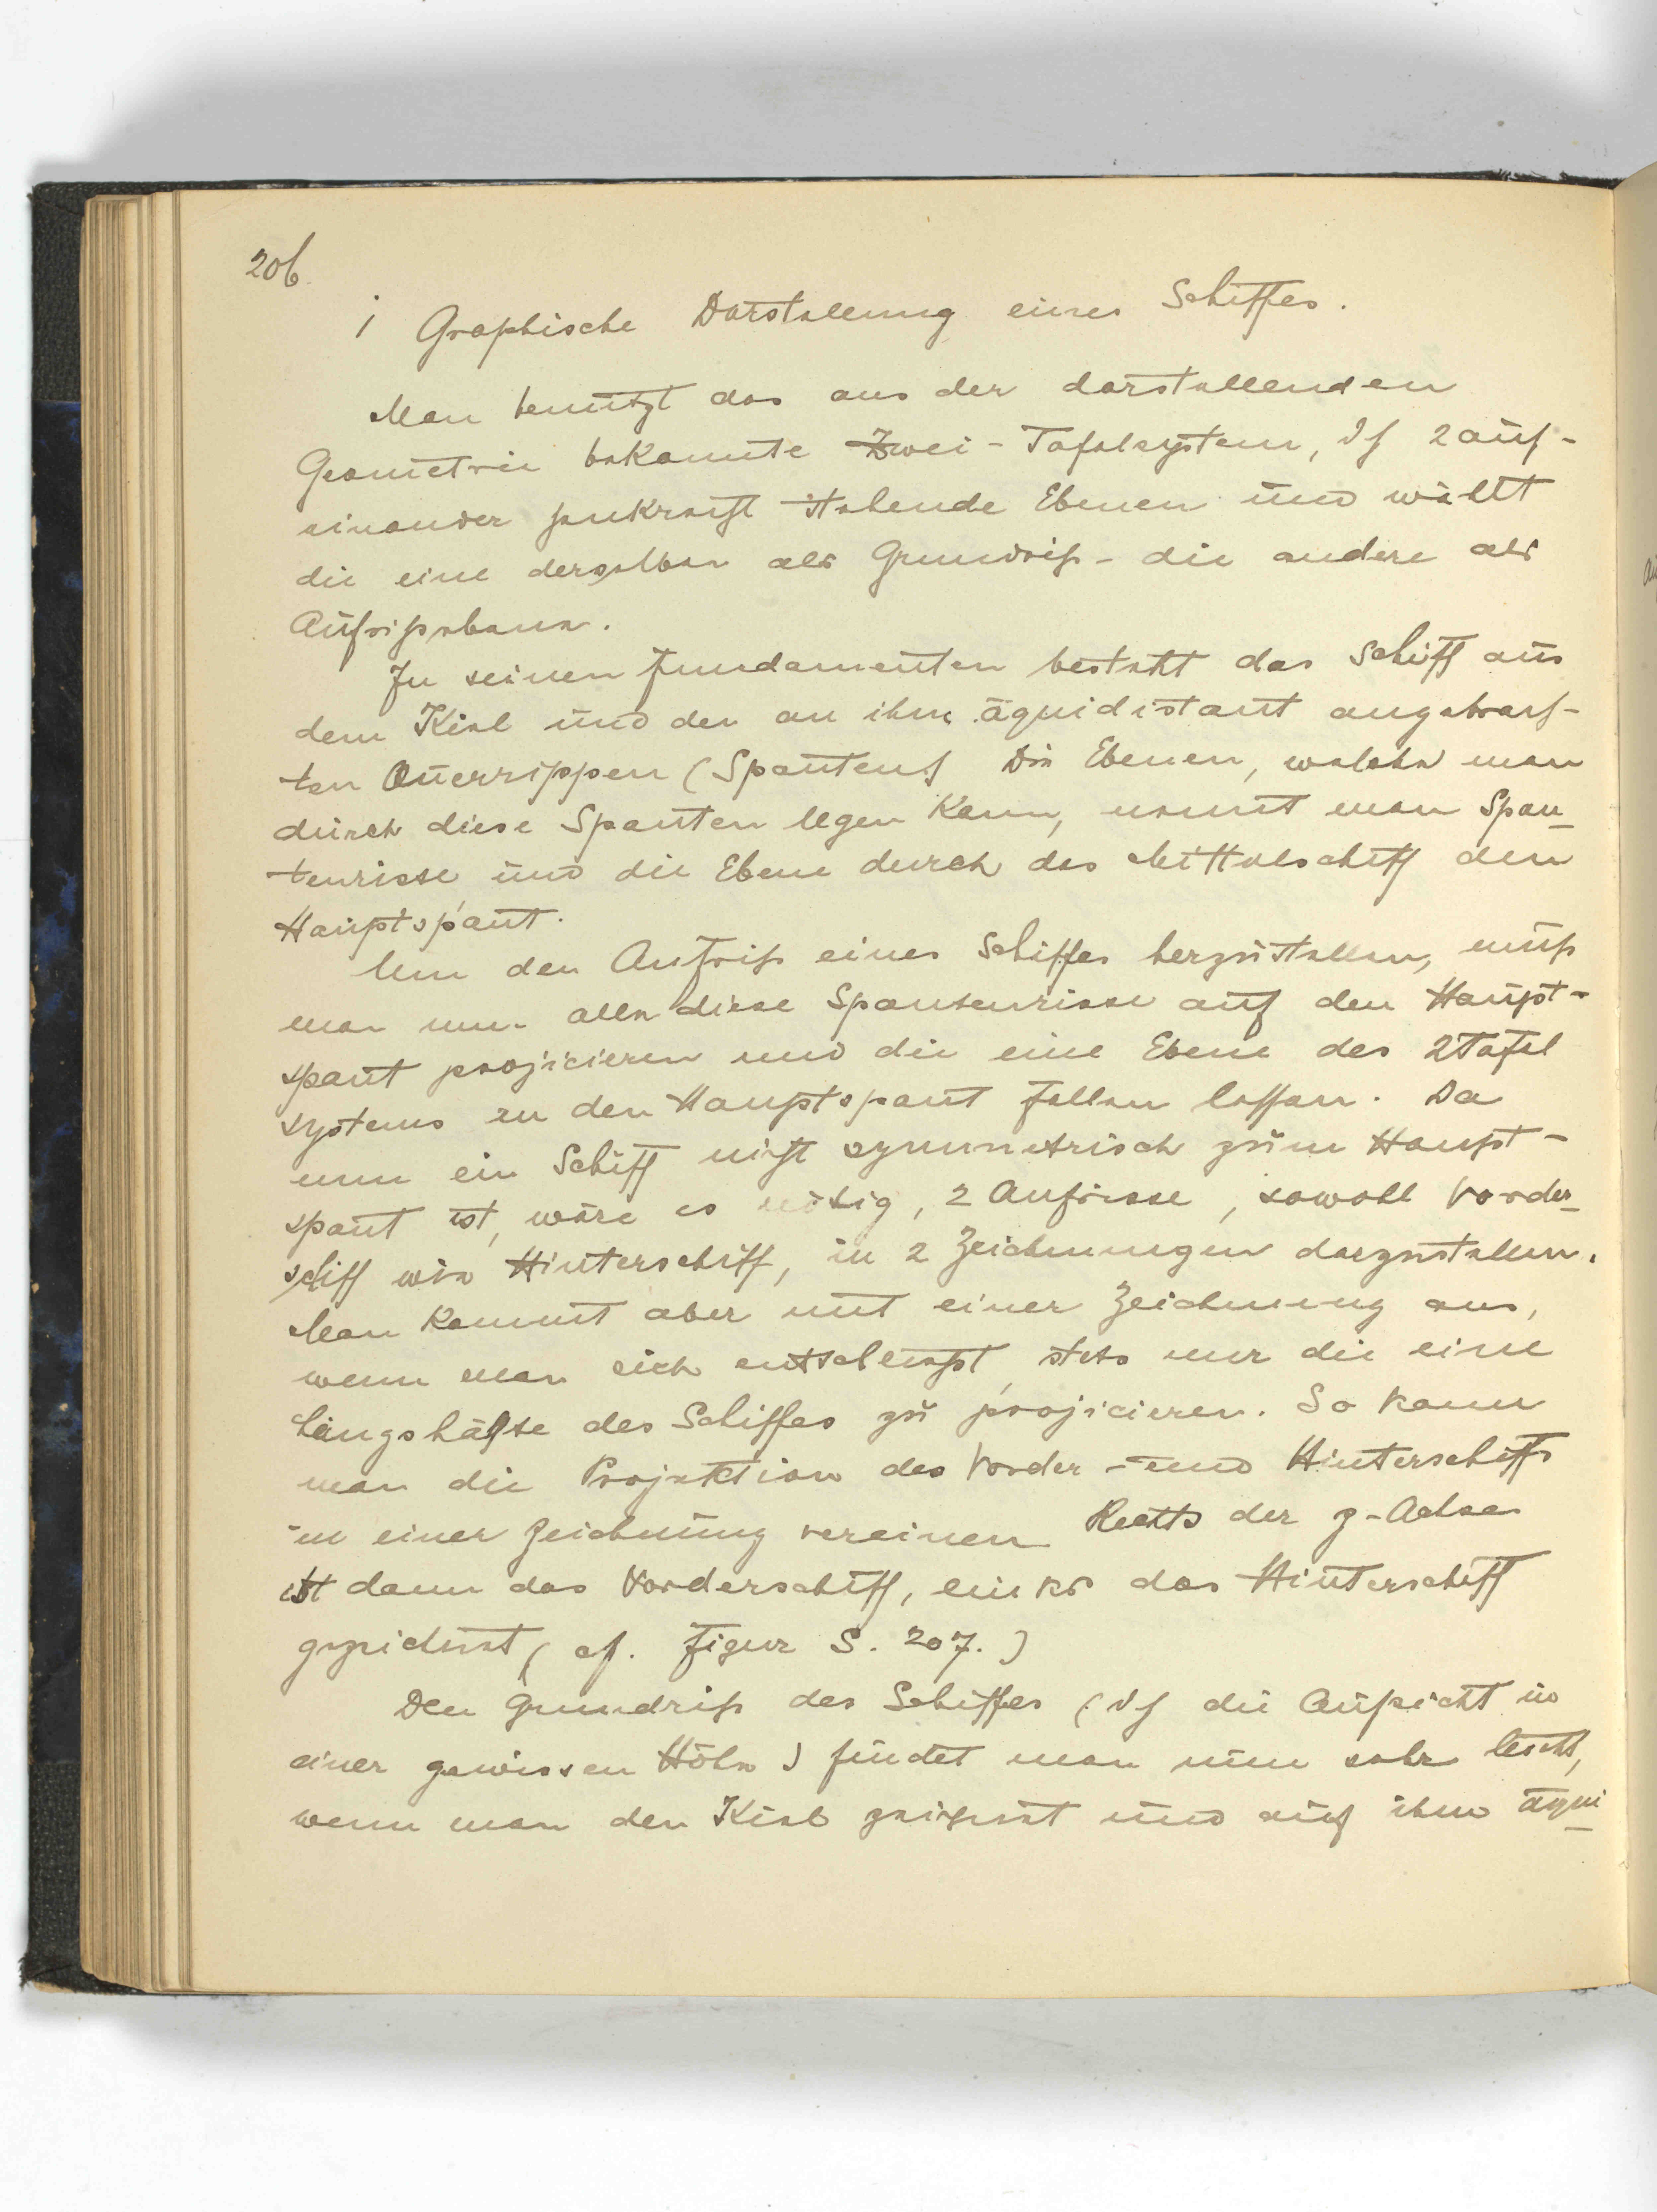 206.
1 Graphische Darstellung eines Schiffes.
Man benutzt das aus der darstellenden
Geometrie bekannte Zwei-Tafelsystem, dh 2 auf-
einander senkrecht stehende Ebenen und wählt
die eine derselben als Grundriß- die andere als
Aufrißebene.
In seinen Fundamenten besteht das Schiff aus
dem Kiel und den an ihm äquidistant angebrach-
ten Querrippen (Spanten) Die Ebenen, welche man
durch diese Spanten legen kann, nennt man Span-
tenrisse und die Ebene durch das Mittelschiff den
Hauptspant.
Um den Aufriß eines Schiffes herzustellen, muß
man nun alle diese Spantenrisse auf den Haupt-
spant projicieren und die eine Ebene des 2 Tafel
systems in den Hauptspant fallen lassen. Da
nun ein Schiff nicht symmetrisch zum Haupt-
spant ist, wäre es nötig, 2 Aufrisse, sowohl Vorder-
schiff wie Hinterschiff, in 2 Zeichnungen darzustellen.
Man kommt aber mit einer Zeichnung aus,
wenn man sich entschließt, stets nur die eine
Längshälfte des Schiffes zu projicieren. So kann
man die Projektion des Vorder- und Hinterschiffs
in einer Zeichnung vereinen Rechts der z-Achse
ist dann das Vorderschiff, links das Hinterschiff
gezeichnet (cf. Figur S. 207.)
Den Grundriß des Schiffes (dh die Aufsicht in
einer gewissen Höhe) findet man nun sehr leicht,
wenn man den Kiel zeichnet und auf ihm äqui-